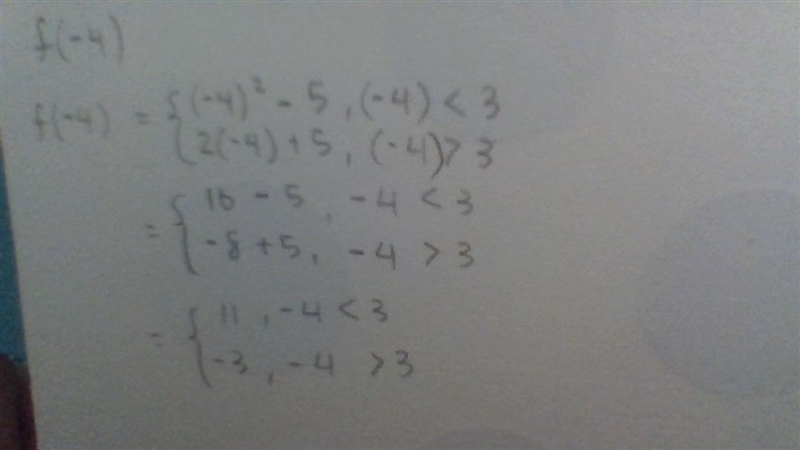 f(-4)
f(-4) = { (-4)² - 5 , (-4) < 3
2(-4) + 5 , (-4) > 3
= { 16 - 5 , -4 < 3
-8 + 5 , -4 > 3
= { 11 , -4 < 3
-3 , -4 > 3